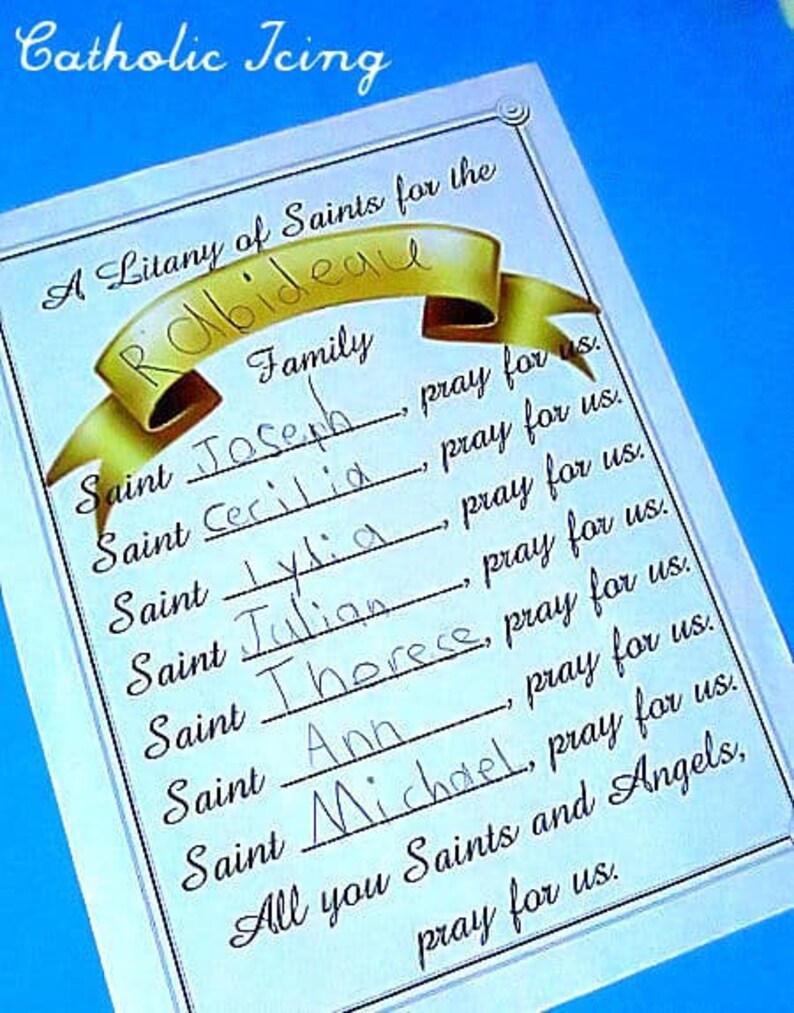 Catholic Icing
A Litany of Saints for the
Rabideau
Family
Saint Joseph, pray for us.
Saint Cecilia, pray for us.
Saint Lydia, pray for us.
Saint Julian, pray for us.
Saint Thorece, pray for us.
Saint Ann, pray for us.
Saint Michael, pray for us.
All you Saints and Angels,
pray for us.